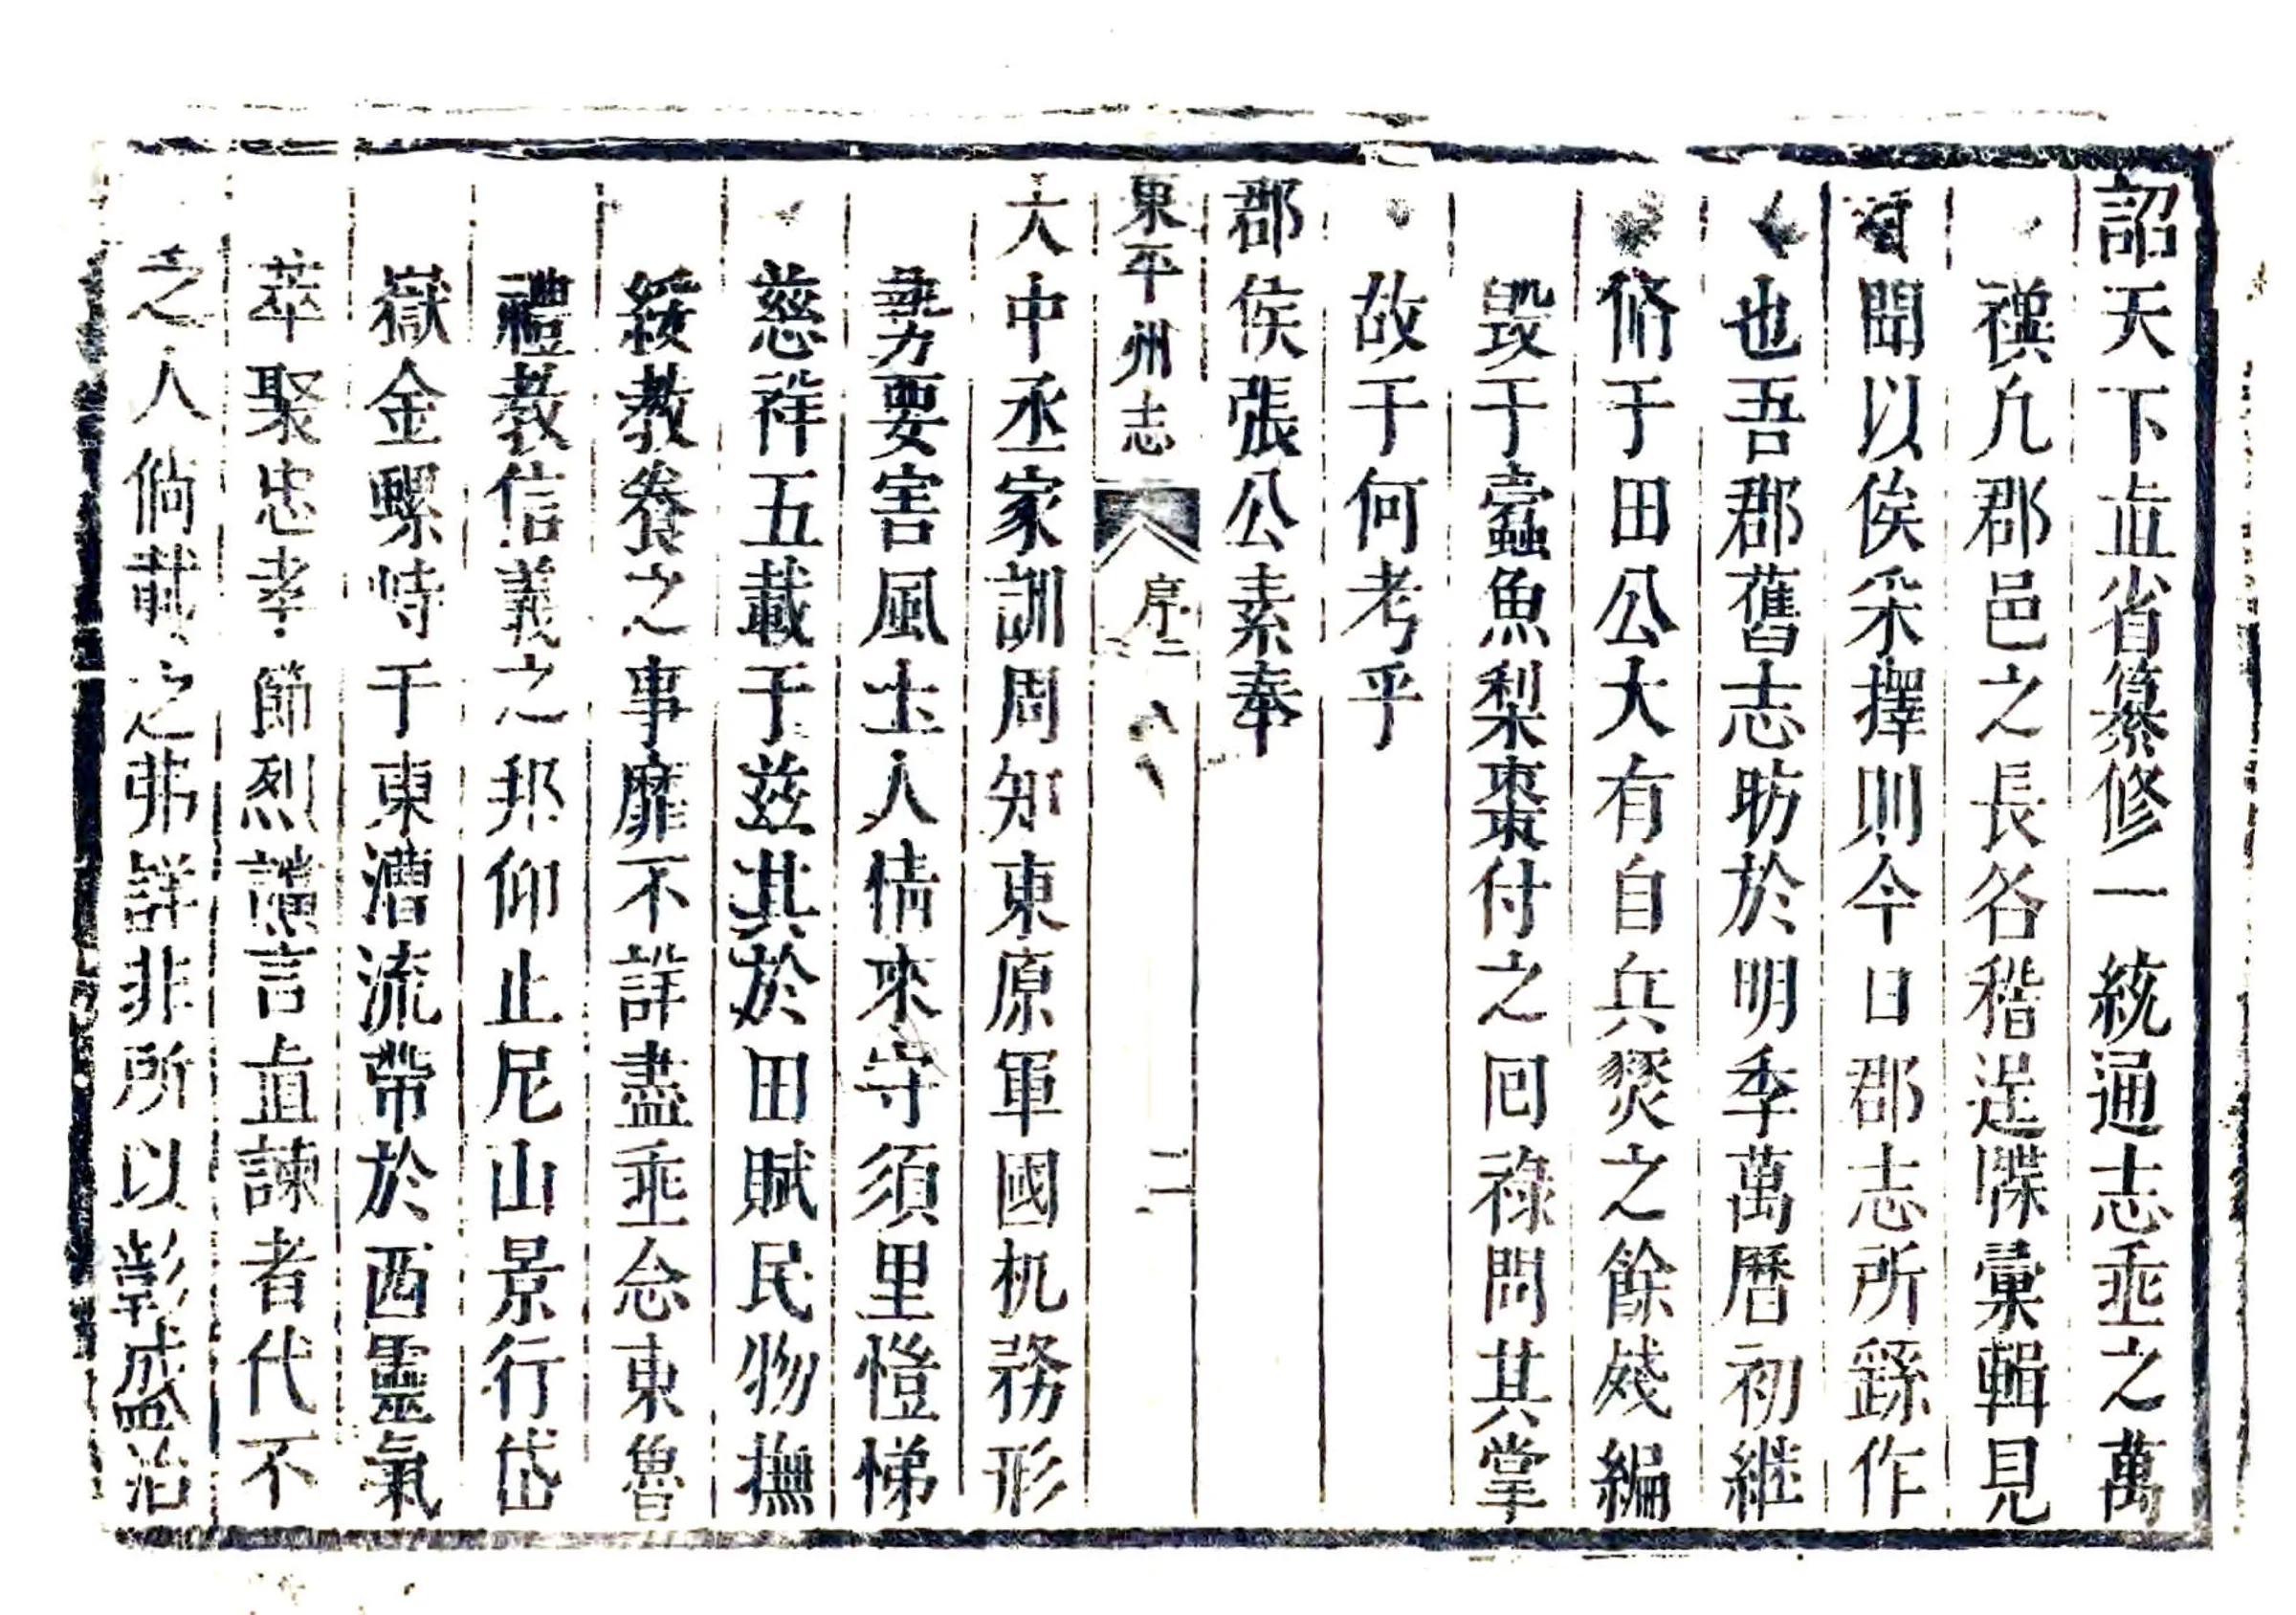 詔天下直省纂修一統通志垂之萬
禩凢郡邑之長各稽逞牒彙輯見
聞以俟采擇則今日郡志所繇作
也吾郡舊志昉於明季萬曆初繼
脩于田公大有自兵燹之餘殘編
毀于蠹魚梨棗付之回祿問其掌
故于何考乎
郡侯張公素奉
東平州志 序二 二
大中丞家訓周知東原軍國机務形
勢要害風土人情來守須里愷悌
慈祥五載于茲其於田賦民物撫
綏教養之事靡不詳盡垂念東魯
禮教信義之邦仰止尼山景行岱
嶽金螺峙于東漕流帶於西靈氣
萃聚忠孝節烈讜言直諫者代不
乏人倘載之弗詳非所以彰盛治